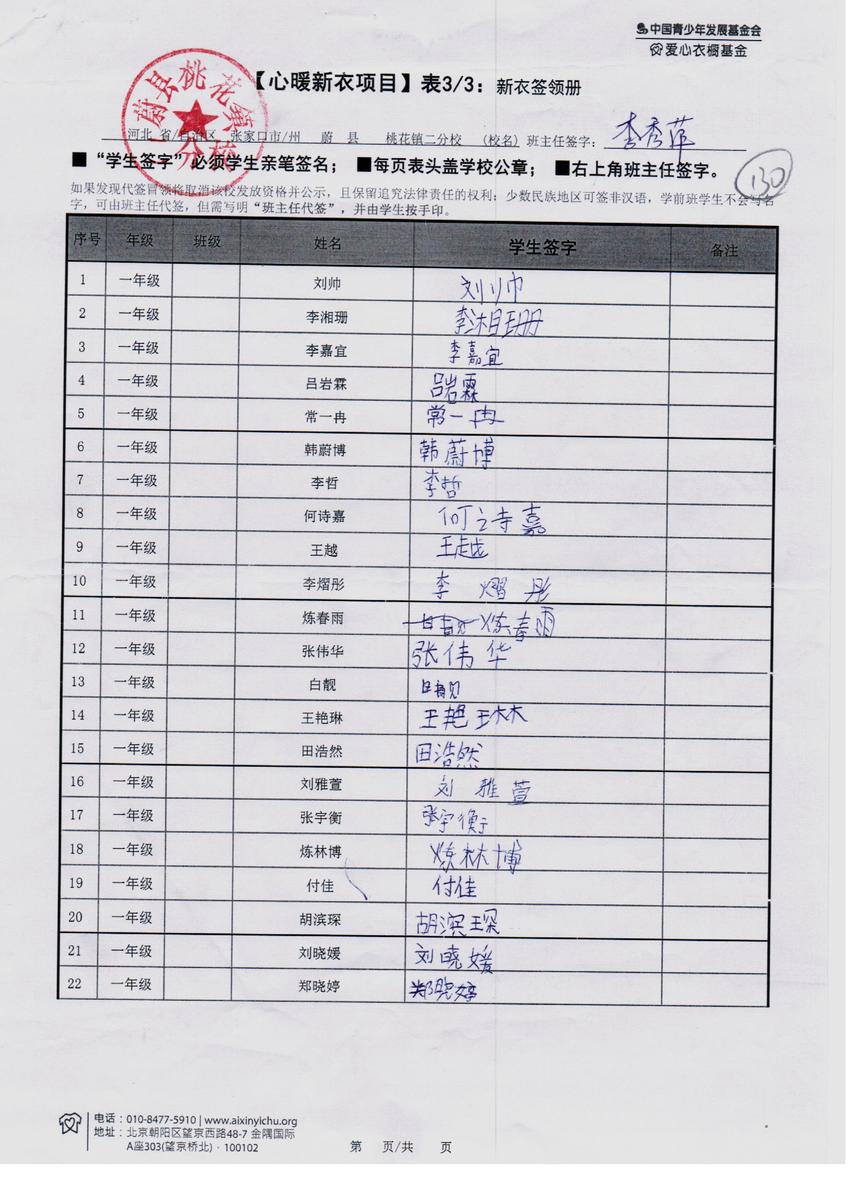 中国青少年发展基金会
爱心衣橱基金
蔚县桃花镇
二分校
【心暖新衣项目】表3/3：新衣签领册
河北 省/自治区 张家口市/州 蔚 县 桃花镇二分校 （校名）班主任签字：李秀萍
■“学生签字”必须学生亲笔签名； ■每页表头盖学校公章； ■右上角班主任签字。
130
如果发现代签冒领将取消该校发放资格并公示，且保留追究法律责任的权利；少数民族地区可签非汉语，学前班学生不会写名
字，可由班主任代签，但需写明“班主任代签”，并由学生按手印。
序号 年级 班级 姓名 学生签字 备注
1 一年级 刘帅 刘帅
2 一年级 李湘珊 李湘珊
3 一年级 李嘉宜 李嘉宜
4 一年级 吕岩霖 吕岩霖
5 一年级 常一冉 常一冉
6 一年级 韩蔚博 韩蔚博
7 一年级 李哲 李哲
8 一年级 何诗嘉 何诗嘉
9 一年级 王越 王越
10 一年级 李熠彤 李熠彤
11 一年级 炼春雨 炼春雨
12 一年级 张伟华 张伟华
13 一年级 白靓 白靓
14 一年级 王艳琳 王艳琳
15 一年级 田浩然 田浩然
16 一年级 刘雅萱 刘雅萱
17 一年级 张宇衡 张宇衡
18 一年级 炼林博 炼林博
19 一年级 付佳 付佳
20 一年级 胡滨琛 胡滨琛
21 一年级 刘晓媛 刘晓媛
22 一年级 郑晓婷 郑晓婷
电话：010-8477-5910 | www.aixinyichu.org
地址：北京朝阳区望京西路48-7 金隅国际
A座303(望京桥北)·100102
第 页/共 页